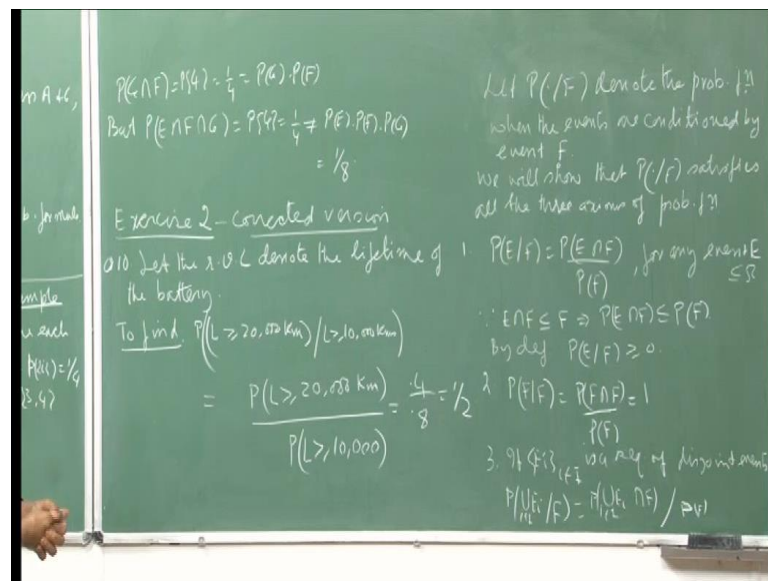 m A + G,
b. formula
mple
each
P({i}) = 1/4
{3, 4}
P(G ∩ F) = P{4} = 1/4 = P(G) . P(F)
But P(E ∩ F ∩ G) = P{4} = 1/4 ≠ P(E) . P(F) . P(G)
= 1/8
Exercise 2 - corrected version
Q10. Let the r.v L denote the lifetime of
the battery.
To find P(L ≥ 20,000 Km) / L ≥ 10,000 Km)
= P(L ≥ 20,000 Km) / P(L ≥ 10,000) = .4/.8 = 1/2
Let P(·/F) denote the prob. fn
when the events are conditioned by
event F.
We will show that P(·/F) satisfies
all the three axioms of prob. fn
1. P(E/F) = P(E ∩ F) / P(F), for any event E ⊆ Ω
∵ E ∩ F ⊆ F ⇒ P(E ∩ F) ≤ P(F)
By def P(E/F) ≥ 0.
2 P(F/F) = P(F ∩ F) / P(F) = 1
3. If {Ei} is a seq of disjoint events
P(∪Ei/F) = P(∪Ei ∩ F) / P(F)